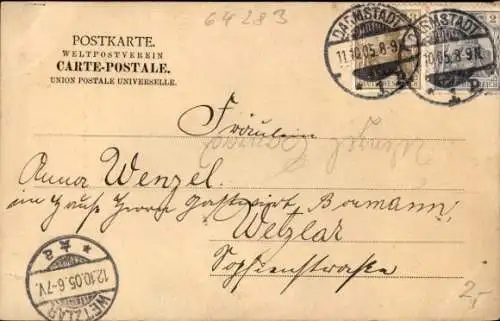 64283
POSTKARTE.
WELTPOSTVEREIN
CARTE-POSTALE.
UNION POSTALE UNIVERSELLE.
DARMSTADT
11.10.05. 8-9
* 1
DARMSTADT
10.05. 8-9
* 1
Fräulein
Anna Wenzel.
im Hause Herrn Gastwirt Bormann,
Wetzlar
Sophienstrasse
WETZLAR
12.10.05. 6-7V.
2,-